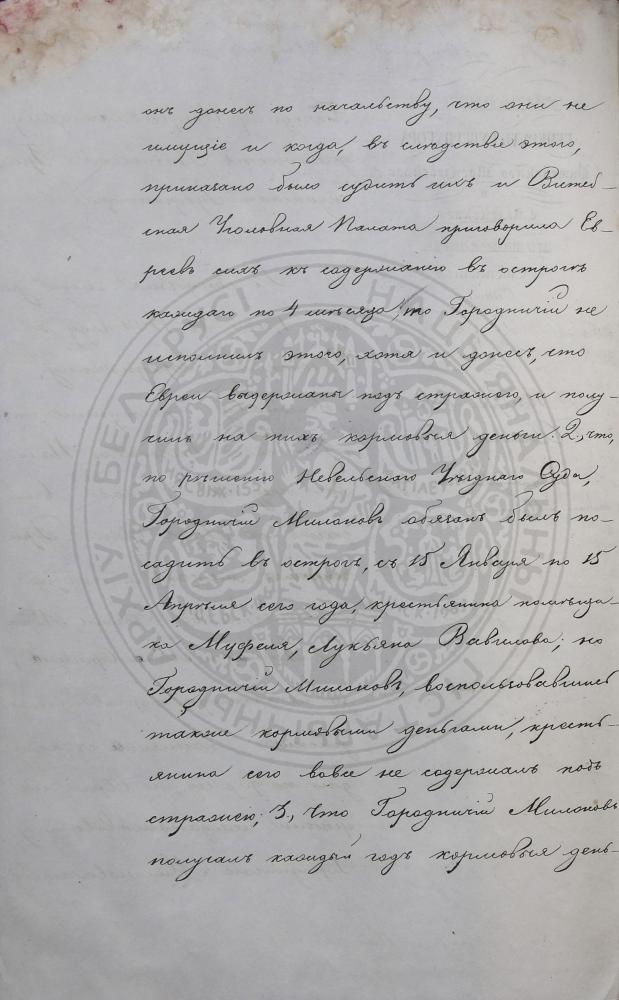 онъ донесъ по начальству, что они не
имущіе и когда, въ слѣдствіе этого,
приказано было судить ихъ и Витеб-
ская Уголовная Палата приговорила Ев-
реевъ сихъ къ содержанію въ острогѣ
каждаго по 4 мѣсяца, то Городничій не
исполнилъ этого, хотя и донесъ, что
Евреи выдержаны подъ стражею, и полу-
чилъ на нихъ кормовыя деньги. 2., что,
по рѣшенію Невельскаго Уѣзднаго Суда,
Городничій Милоковъ обязанъ былъ по-
садить въ острогъ, съ 15 Января по 15
Апрѣля сего года, крестьянина помѣщи-
ка Муфеля, Лукьяна Вавилова; но
Городничій Милоковъ, воспользовавшись
также кормовыми деньгами, кресть-
янина сего вовсе не содержалъ подъ
стражею; 3., Что Городничій Милоковъ
получалъ каждый годъ кормовыя день-